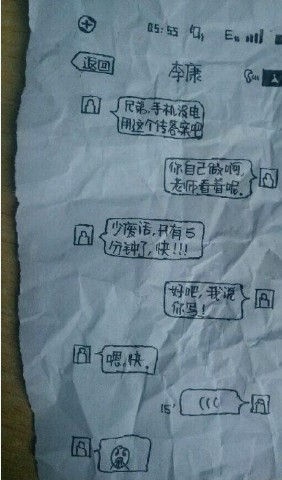 05:55 E
返回 李康
兄弟,手机没电
用这个传答案吧
你自己做啊,
老师看着呢.
少废话,只有5
分钟了,快!!!
好吧,我说
你写!
嗯,快.
15"
(((